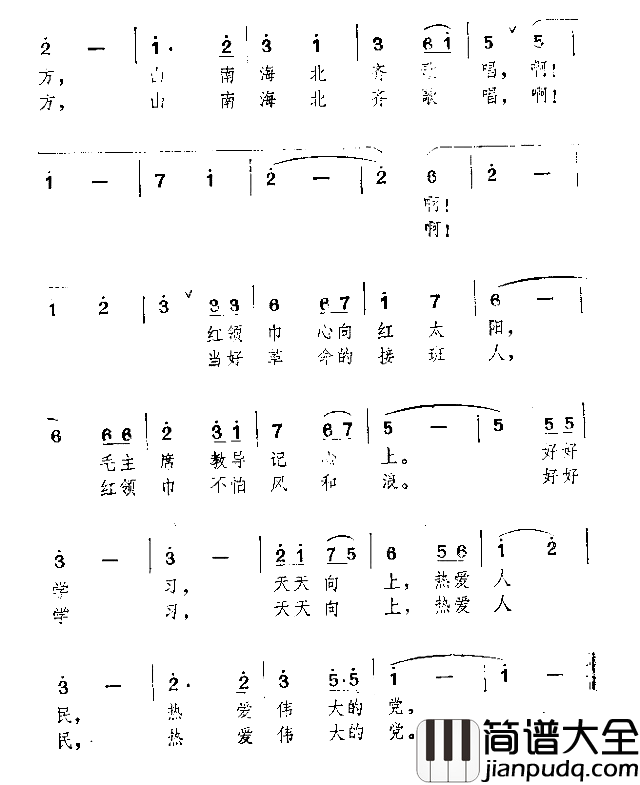 2 — 1· 2 3 1 3 6 1 5 ˅ 5
方， 山 南 海 北 齐 歌 唱， 啊！
方， 山 南 海 北 齐 歌 唱， 啊！
1 — 7 1 2 — 2 6 2 —
啊！
啊！
1 2 3 ˅ 3 3 6 6 7 1 7 6 —
红领 巾 心向 红 太 阳，
当好 革 命的 接 班 人，
6 6 6 2 3 1 7 6 7 5 — 5 5 5
毛主 席 教导 记 心 上。 好好
红领 巾 不怕 风 和 浪。 好好
3 — 3 — 2 1 7 5 6 5 6 1 2
学 习， 天天 向 上， 热爱 人
学 习， 天天 向 上， 热爱 人
3 — 2· 2 3 5·5 1 — 1 —
民， 热 爱 伟 大的 党，
民， 热 爱 伟 大的 党。
简谱大全
jianpudq.com